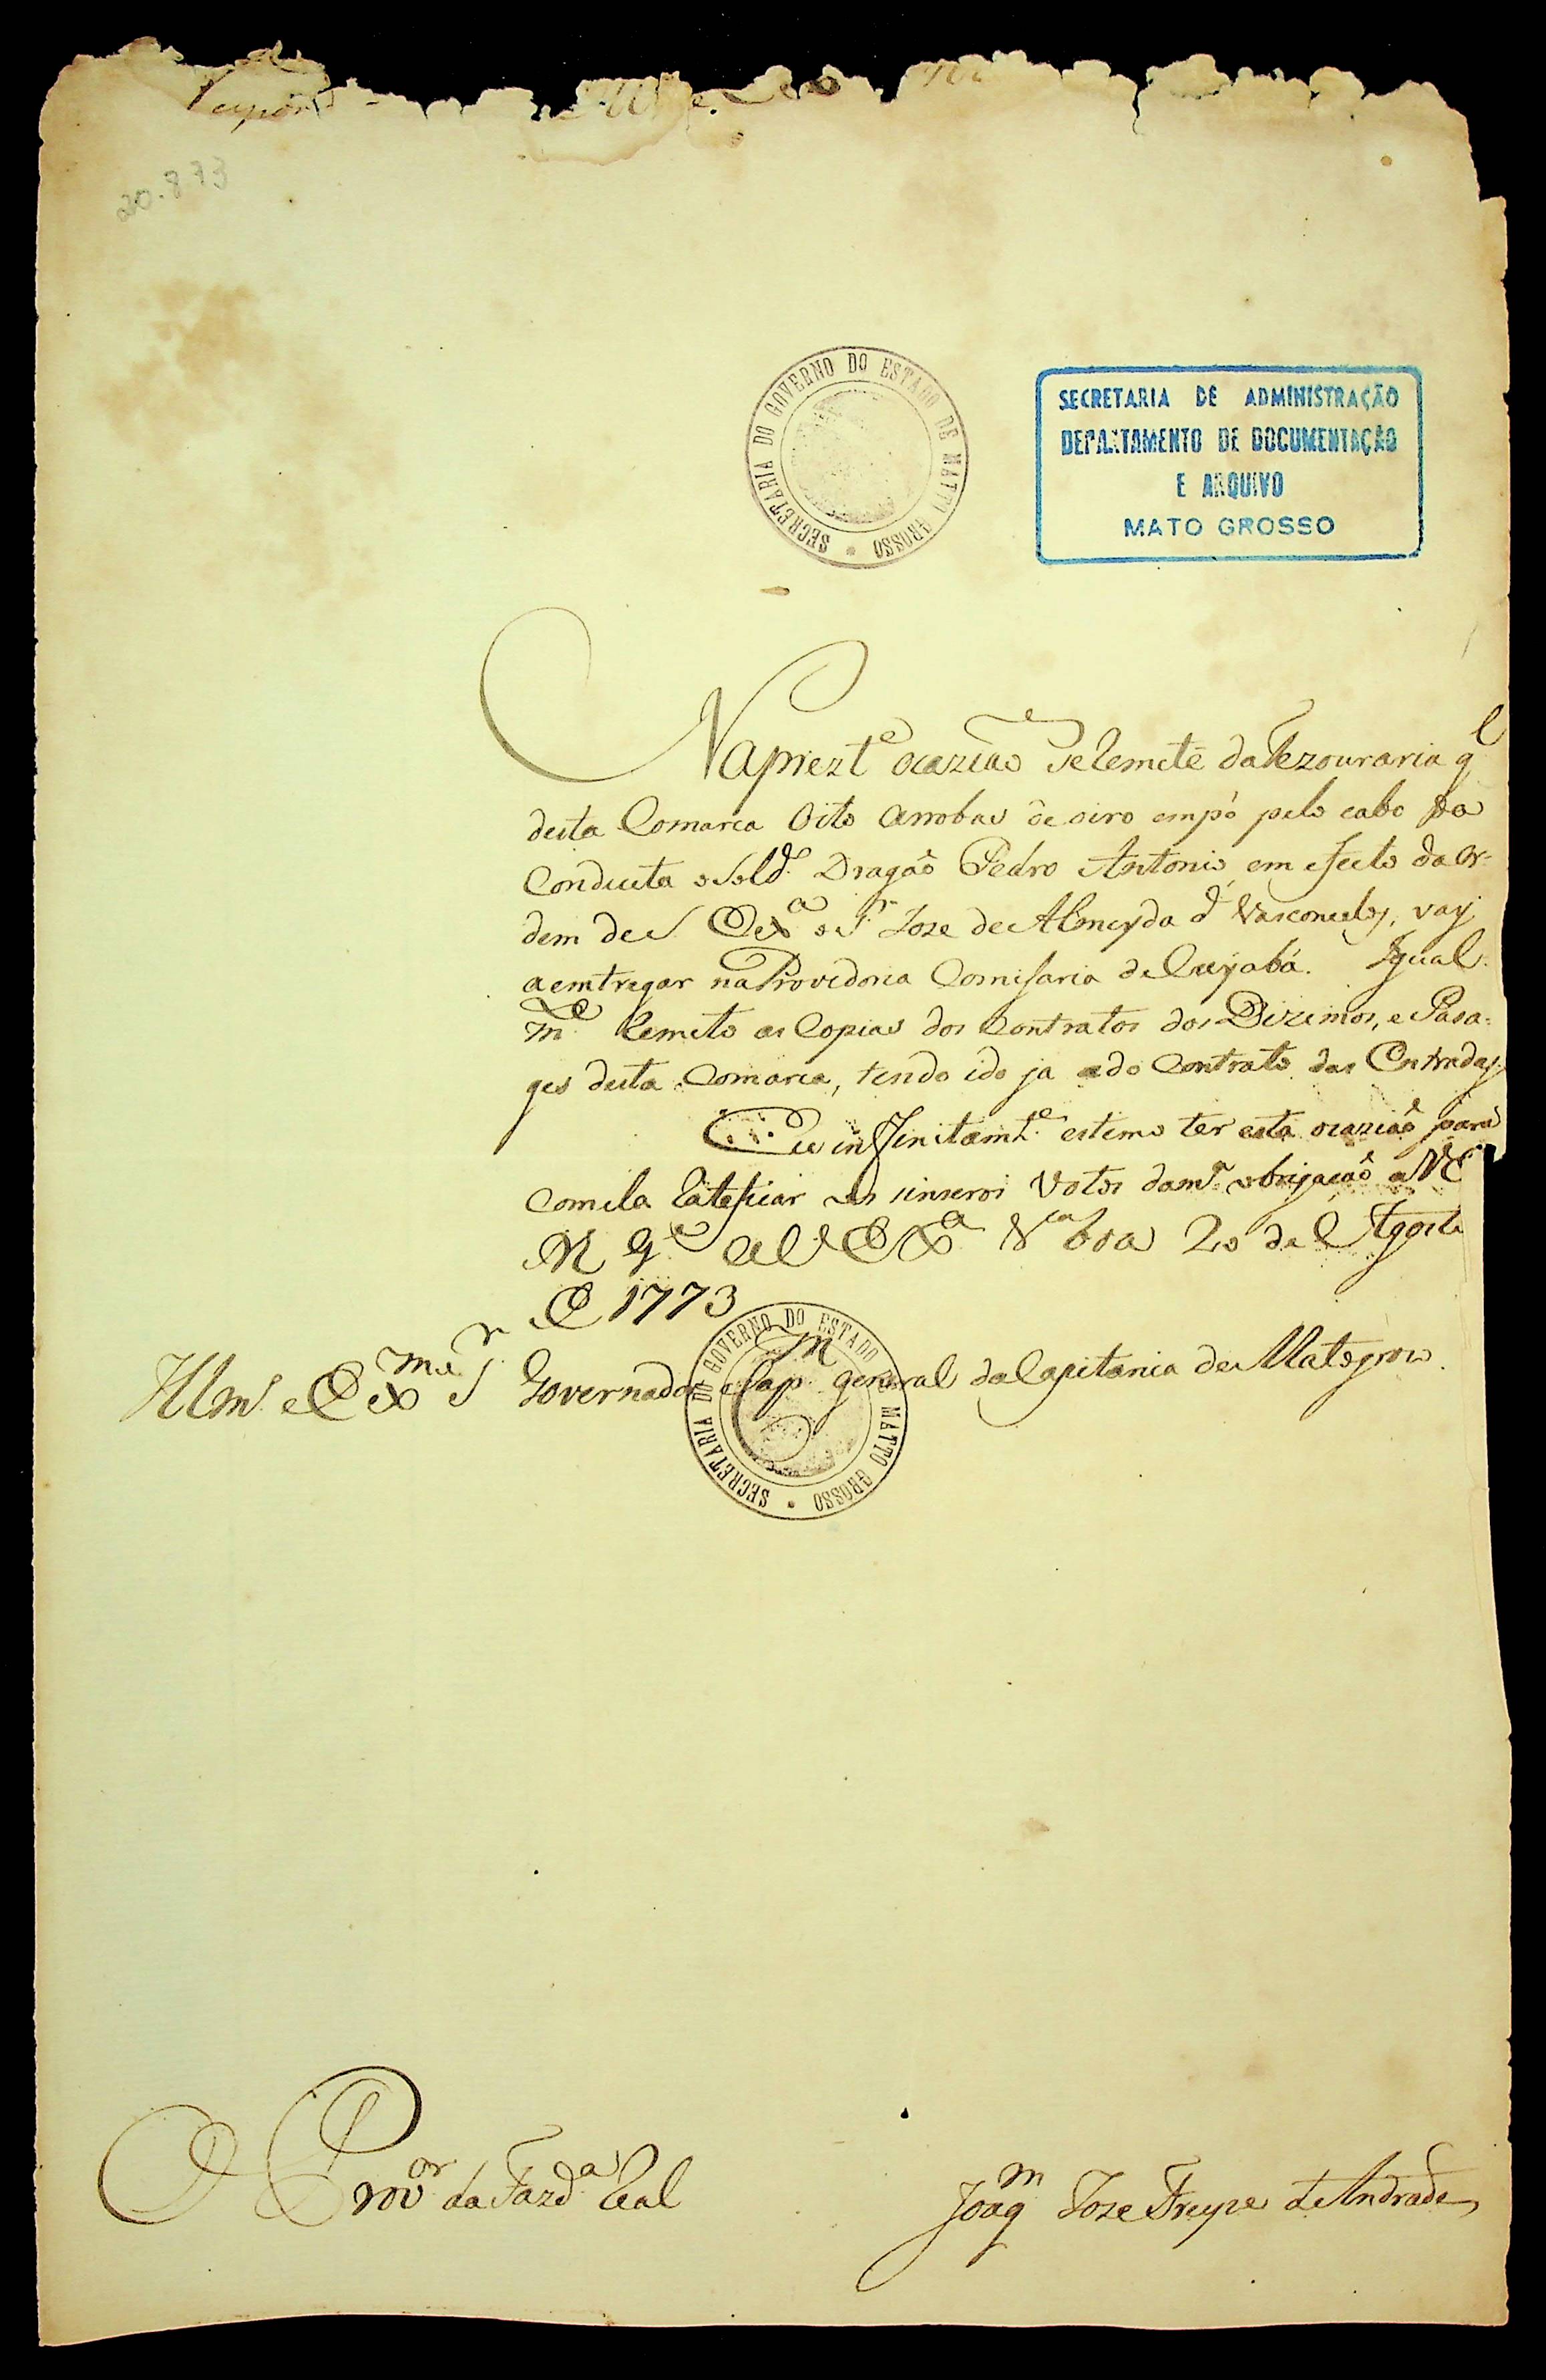 20.873
SECRETARIA DO GOVERNO DO ESTADO DE MATTO GROSSO
SECRETARIA DE ADMINISTRAÇÃO
DEPARTAMENTO DE DOCUMENTAÇÃO
E ARQUIVO
MATO GROSSO
Na prezte ocaziaõ se Remete da Tezouraria gl
desta Comarca Oito arrobas de oiro empó pelo cabo da
Conducta o Sold.o Dragaõ Pedro Antonio, em efecto da or-
dem de S. Exa o Sr. Joze de Almeyda d' Vasconcelos, vay
a emtregar na Provedoria Comisaria de Cuyabá. Igual-
me. Remeto as Copias dos Contratos dos Dizimos, e Pasa-
ges desta Comarca, tendo ido ja a do Contrato das Entradas.
Eu infinitamte. estimo ter esta ocaziaõ para
com ela Rateficar os sinseros Votos da ma. obrigacaõ a VE
N Ge a V Exa Va boa 20 de Agosto
E 1773
Illmo. e Exmo Sr. Governador e Capm general da Capitania de Matogroso.
SECRETARIA DO GOVERNO DO ESTADO DE MATTO GROSSO
O Provor da Fazda. Real
Joaqm Joze Freyre de Andrade